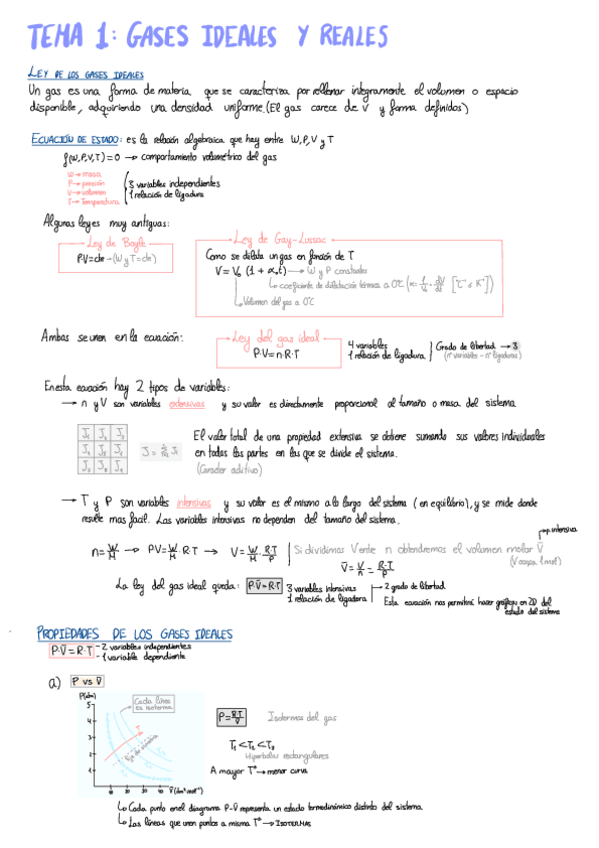 TEMA 1: GASES IDEALES Y REALES
LEY DE LOS GASES IDEALES
Un gas es una forma de materia que se caracteriza por rellenar íntegramente el volumen o espacio
disponible, adquiriendo una densidad uniforme. (El gas carece de V y forma definidos)
ECUACIÓN DE ESTADO: es la relación algebraica que hay entre W, P, V y T
f(W,P,V,T)=0 → comportamiento volumétrico del gas
W → masa
P → presión
V → volumen
T → Temperatura
3 variables independientes
1 relación de ligadura
Algunas leyes muy antiguas:
Ley de Boyle
P·V=cte - (W y T=cte)
Ley de Gay-Lussac
Como se dilata un gas en función de T
V = V₀ (1 + α₀t) → W y P constantes
coeficiente de dilatación térmica a 0°C
Volumen del gas a 0°C
Ambas se unen en la ecuación:
Ley del gas ideal
P·V=n·R·T
4 variables
1 relación de ligadura
Grado de libertad → 3
(nº variables - nº ligaduras)
En esta ecuación hay 2 tipos de variables:
→ n y V son variables extensivas y su valor es directamente proporcional al tamaño o masa del sistema
El valor total de una propiedad extensiva se obtiene sumando sus valores individuales
en todas las partes en las que se divide el sistema.
(Carácter aditivo)
→ T y P son variables intensivas y su valor es el mismo a lo largo del sistema (en equilibrio), y se mide donde
resulte mas facil. Las variables intensivas no dependen del tamaño del sistema.
p. intensiva
n = W/M → PV = W/M · R·T → V = W/M · R·T/P
Si dividimos V entre n obtendremos el volumen molar V̄
(V ocupa 1 mol)
V̄ = V/n = R·T/P
La ley del gas ideal queda: P·V̄=R·T
3 variables intensivas
1 relación de ligadura
→ 2 grado de libertad
Esta ecuación nos permitirá hacer gráficas en 2D del
estado del sistema
PROPIEDADES DE LOS GASES IDEALES
P·V̄=R·T
- 2 variables independientes
- 1 variable dependiente
a) P vs V̄
P(atm)
Cada línea
es isoterma
5
4
3
2
1
10 20 30 40 V̄(dm³·mol⁻¹)
P = RT/V̄
Isotermas del gas
T₁<T₂<T₃
Hiperbolas rectangulares
A mayor Tª → menor curva
Cada punto en el diagrama P-V̄ representa un estado termodinámico distinto del sistema
Las líneas que unen puntos a misma Tª → ISOTERMAS